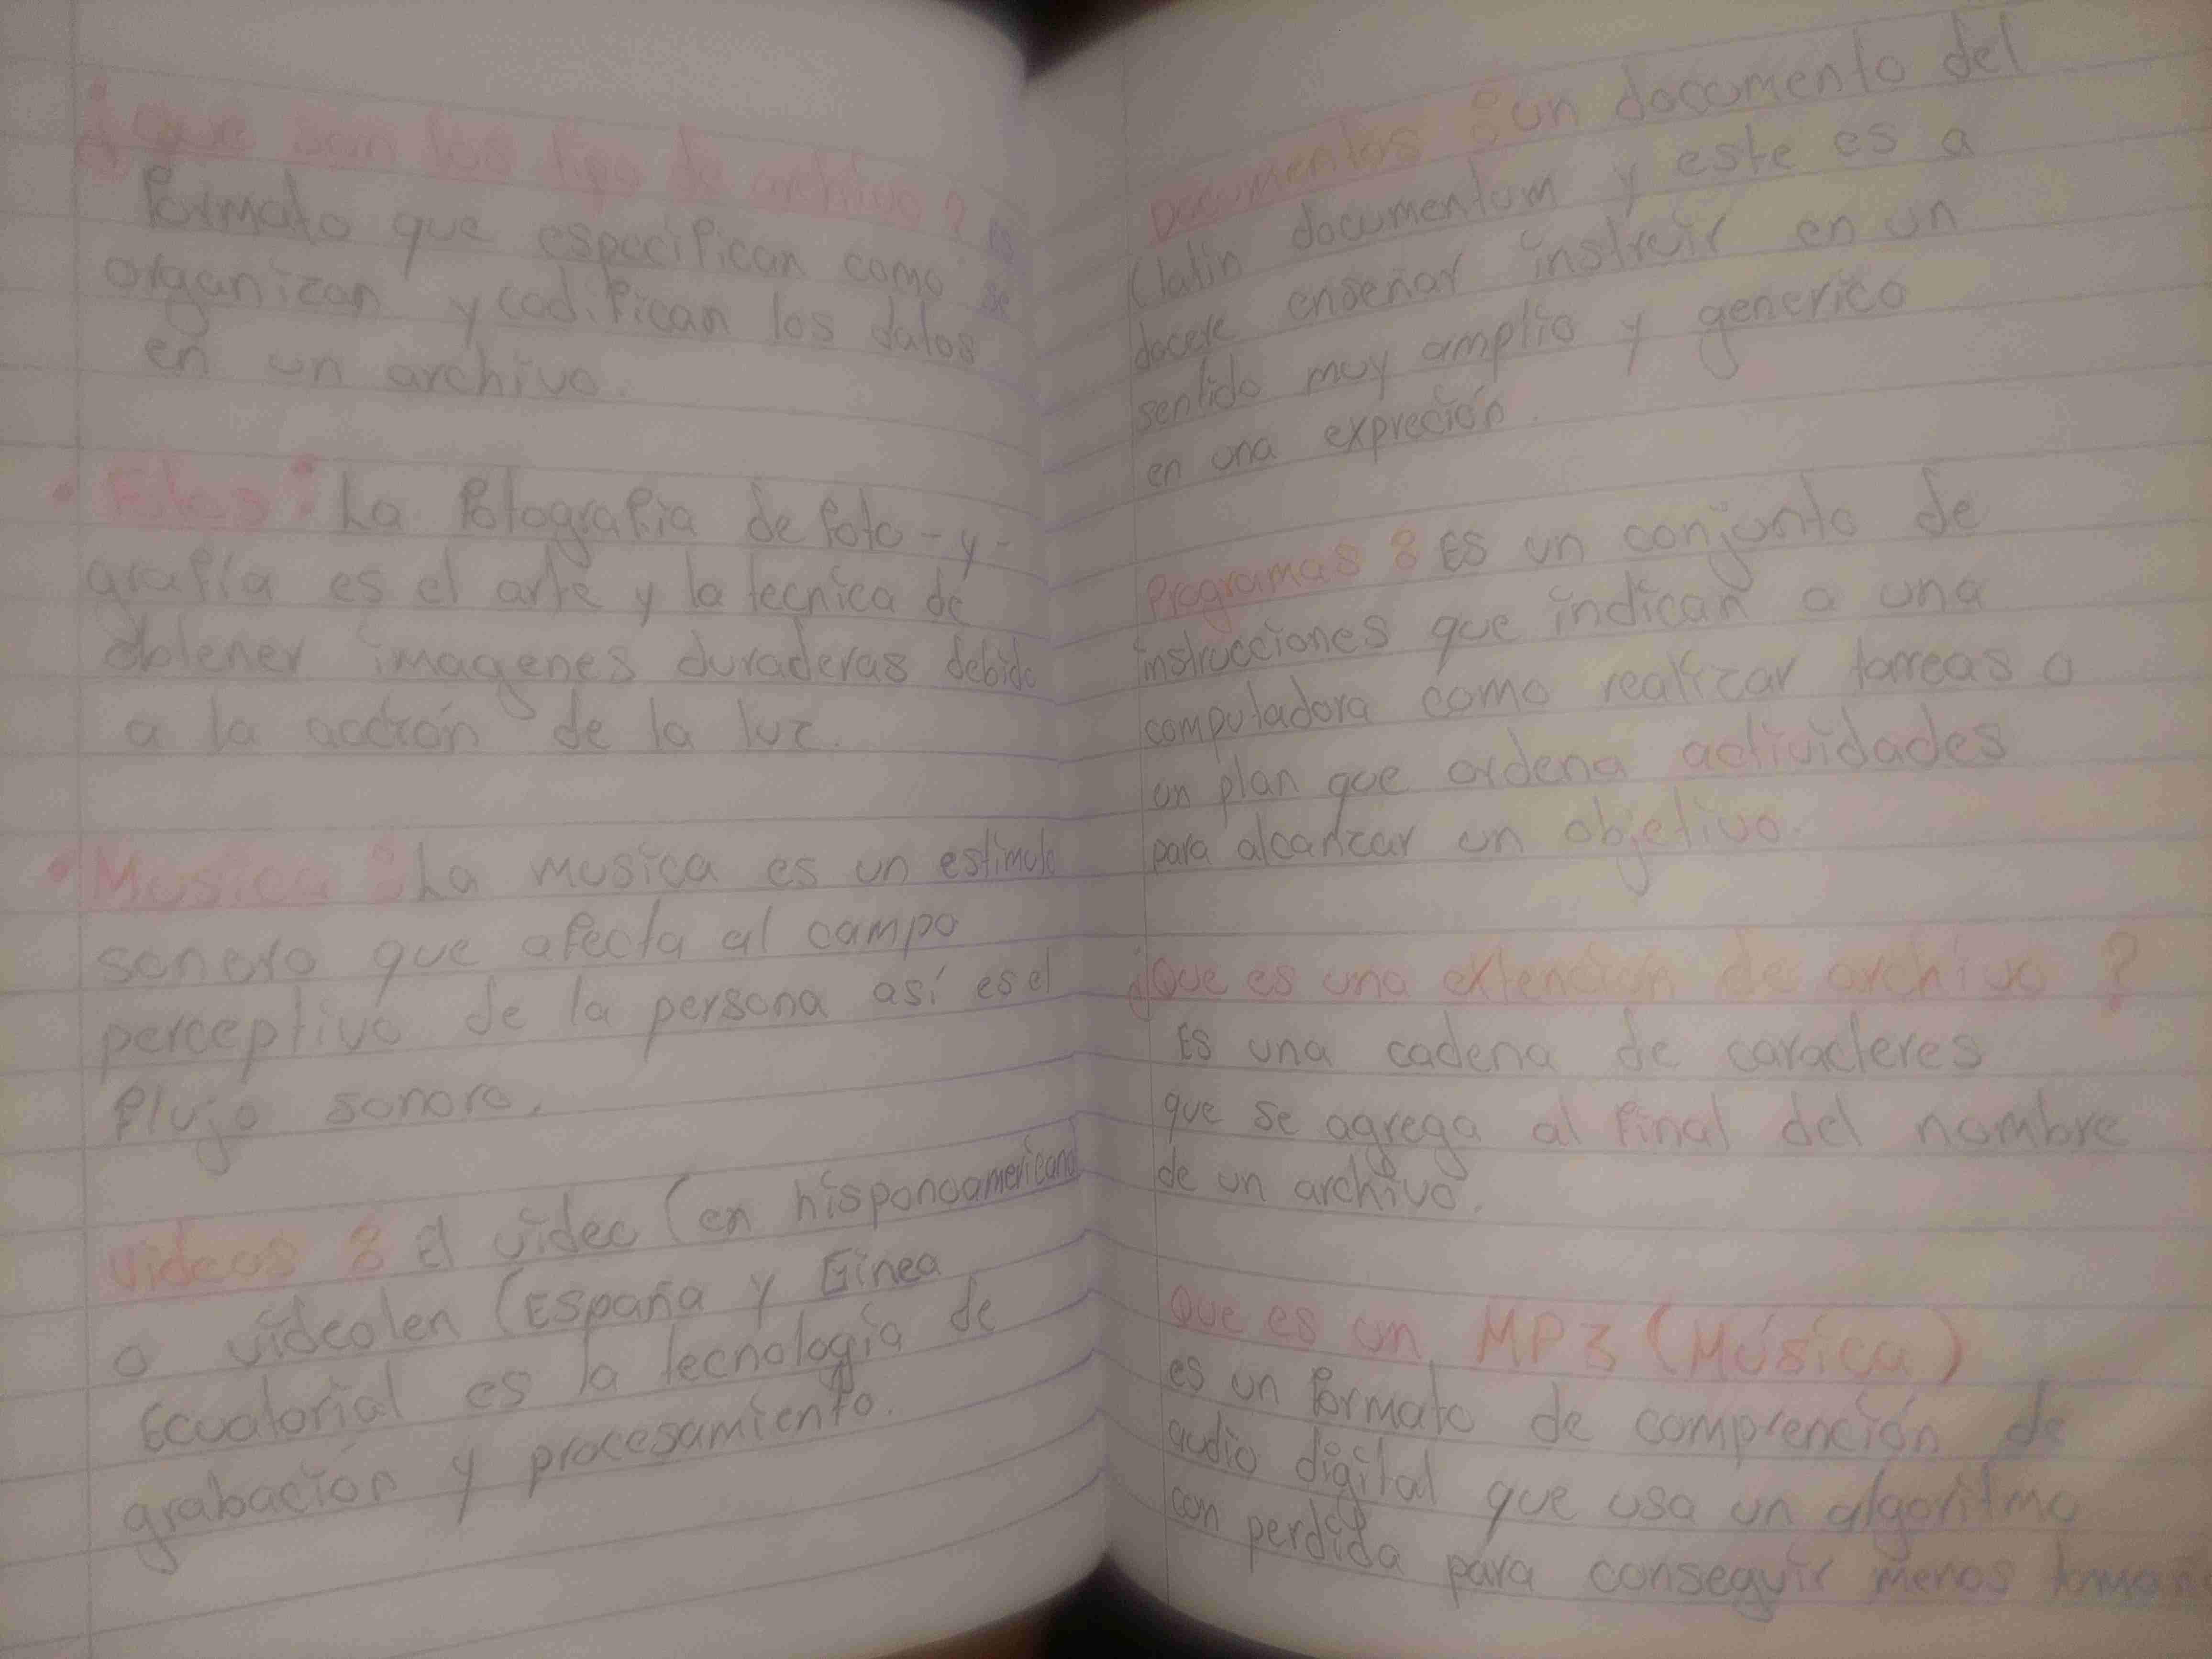 ¿que son los tipo de archivo? Es
formato que especifican como se
organizan y codifican los datos
en un archivo.
• Fotos: La fotografia de foto-y-
grafía es el arte y la tecnica de
obtener imagenes duraderas debido
a la acción de la luz.
• Musica: La musica es un estimulo
sonoro que afecta al campo
perceptivo de la persona así es el
flujo sonoro.
Videos: El video (en hispanoamericano
o videolen (España y Ginea
Ecuatorial es la tecnología de
grabación y procesamiento.
Documentos: un documento del
(latin documentum y este es a
docere enseñar instruir en un
sentido muy amplio y generico
en una expreción.
Programas: Es un conjunto de
instrucciones que indican a una
computadora como realizar tarreas o
un plan que ordena actividades
para alcanzar un objetivo.
¿Que es una extención de archivo?
Es una cadena de caracteres
que se agrega al final del nombre
de un archivo.
Que es un MP3 (Música)
es un formato de comprención de
audio digital que usa un algoritmo
con perdida para conseguir menos tamaño